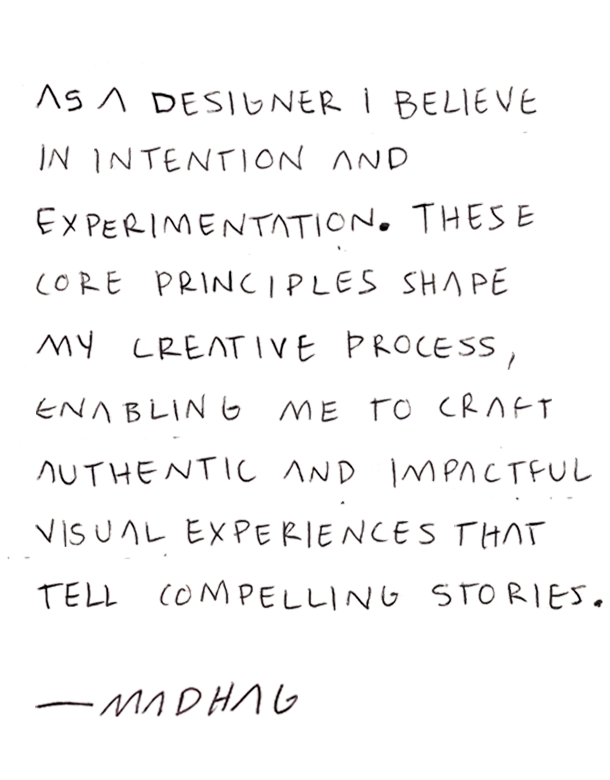 AS A DESIGNER I BELIEVE
IN INTENTION AND
EXPERIMENTATION. THESE
CORE PRINCIPLES SHAPE
MY CREATIVE PROCESS,
ENABLING ME TO CRAFT
AUTHENTIC AND IMPACTFUL
VISUAL EXPERIENCES THAT
TELL COMPELLING STORIES.
—MADHAG